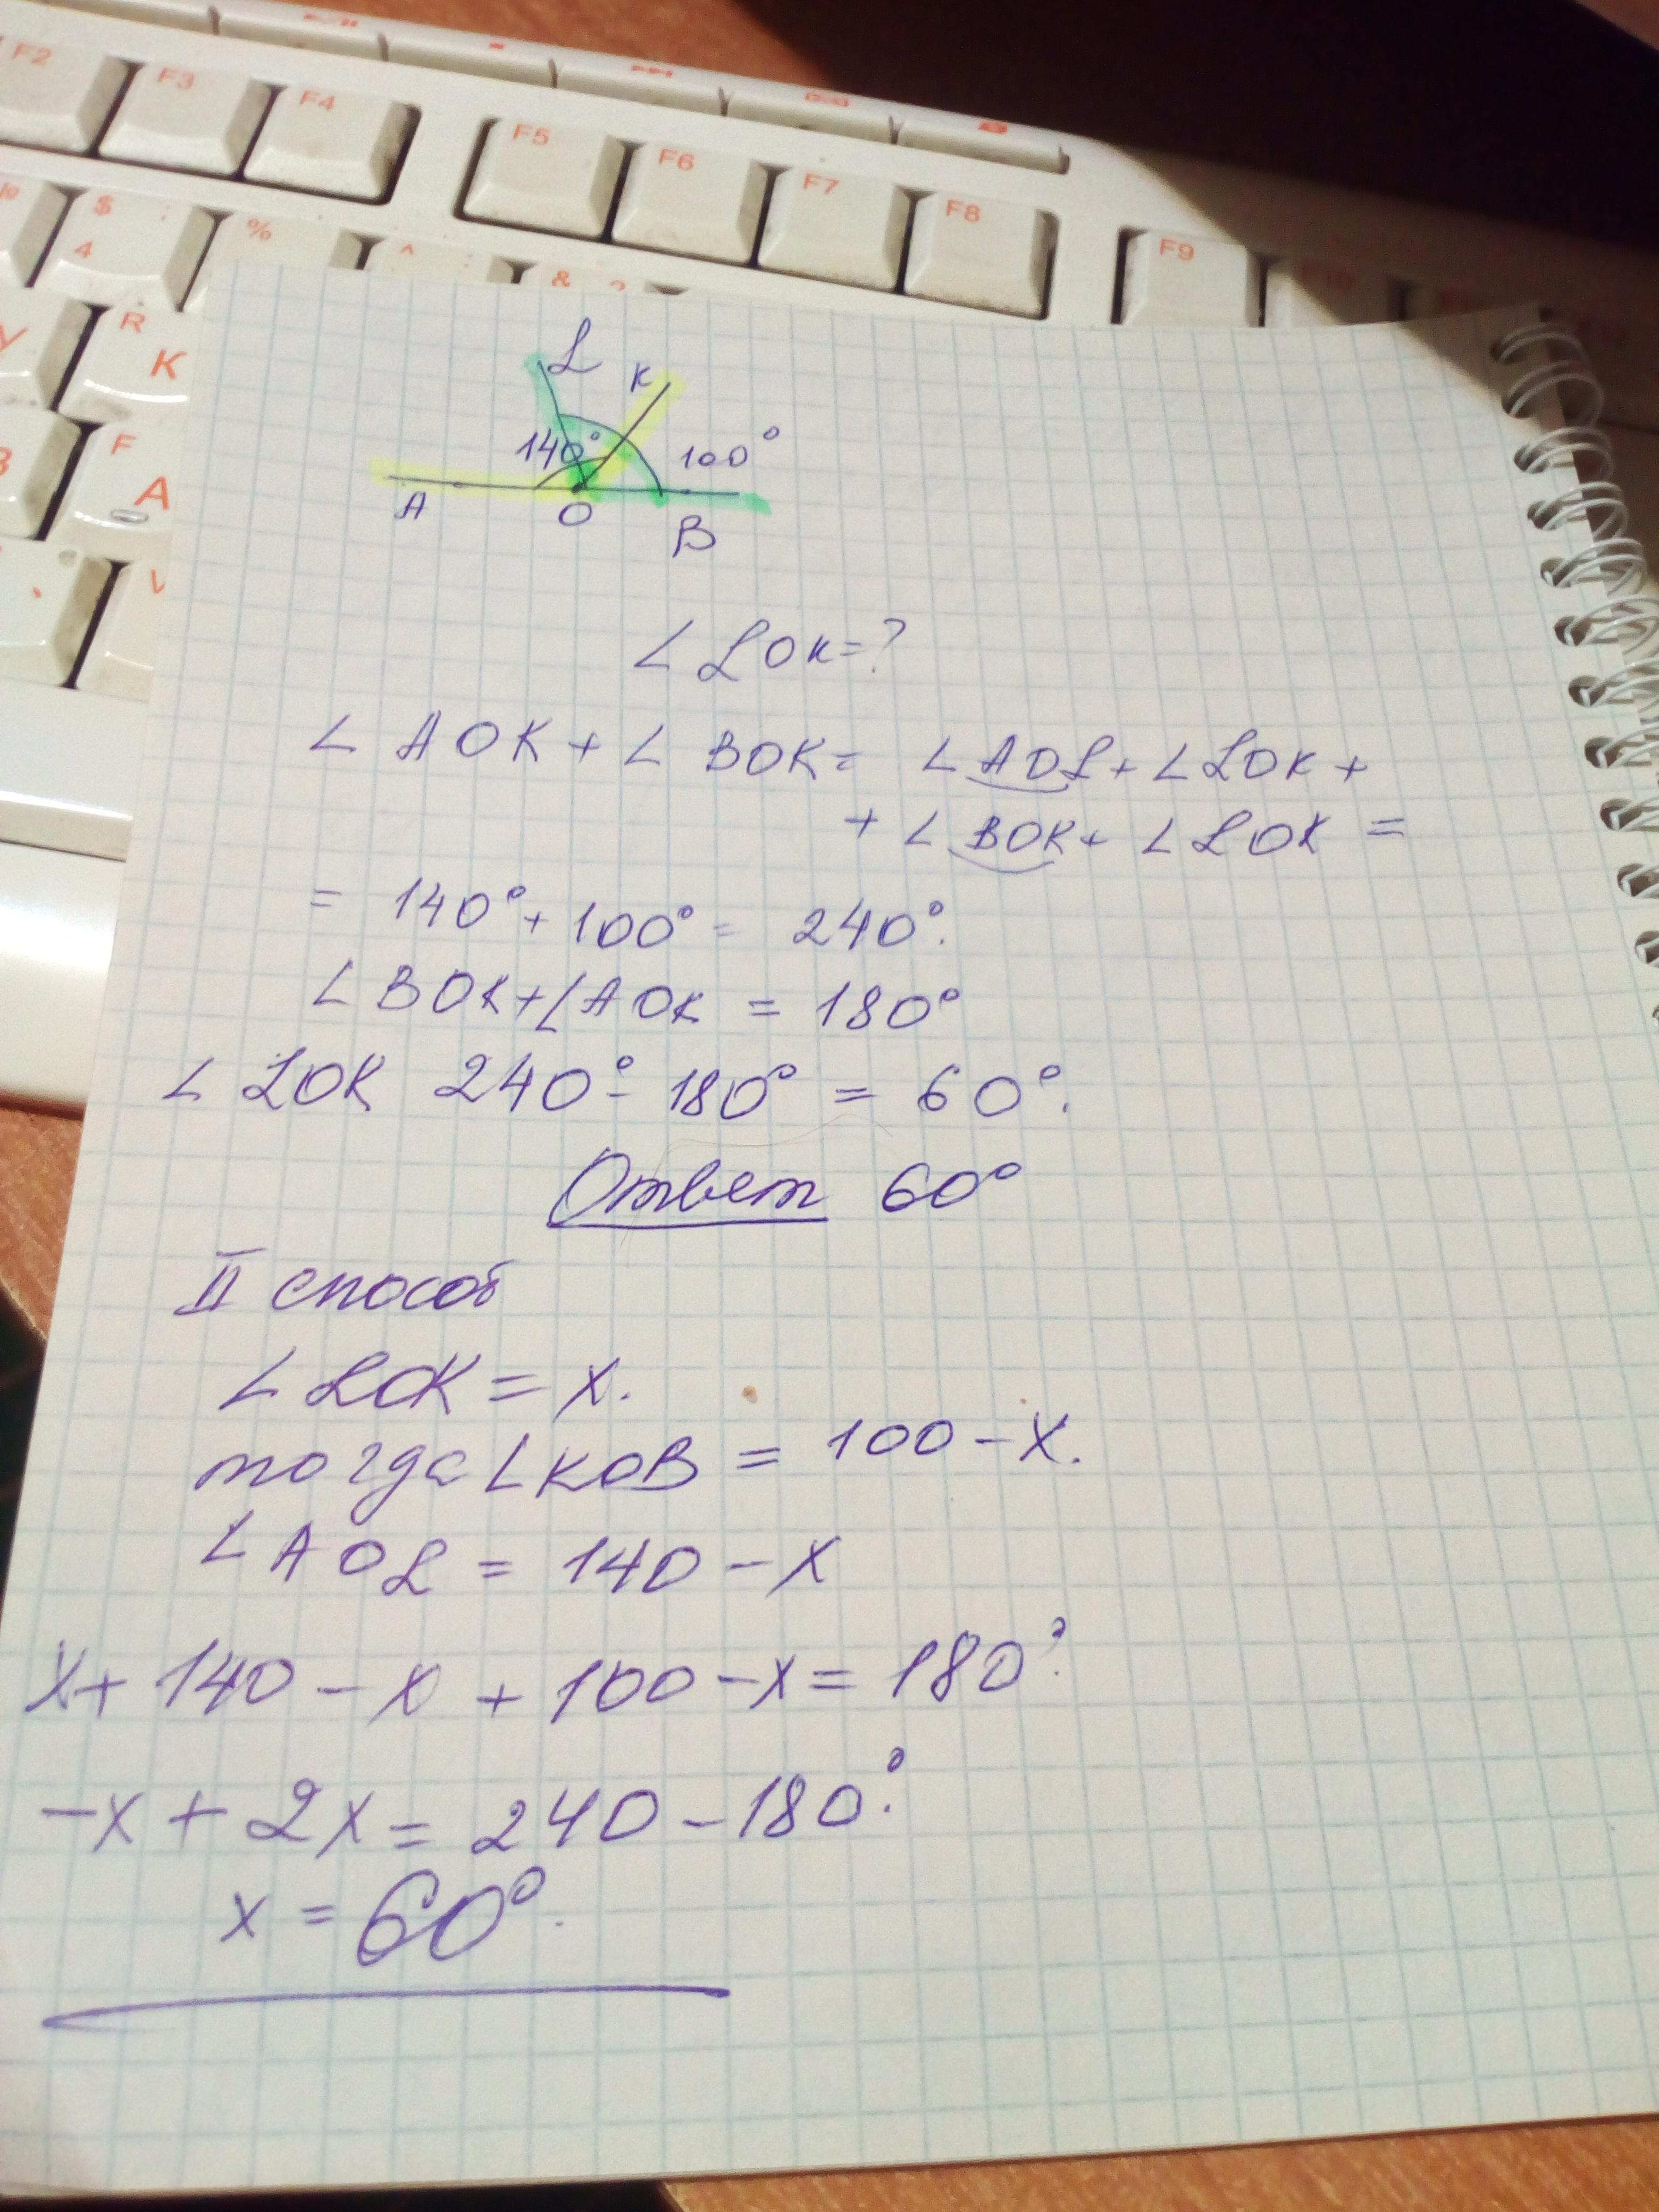 F2 F3 F4 F5 F6 F7 F8 F9 F10
$ 4 % ^ : &
R K
F A
V
L K
140° 100°
A O B
∠ LOK=?
∠ AOK + ∠ BOK= ∠ AOL + ∠ LOK +
+ ∠ BOK + ∠ LOK =
= 140° + 100° = 240°.
∠ BOK+∠AOK = 180°
∠ LOK 240° - 180° = 60°.
Ответ 60°
II способ
∠ LOK = x.
тогда ∠KOB = 100 - x.
∠ AOL = 140 - x
x + 140 - x + 100 - x = 180°.
-x + 2x = 240 - 180°.
x = 60°.